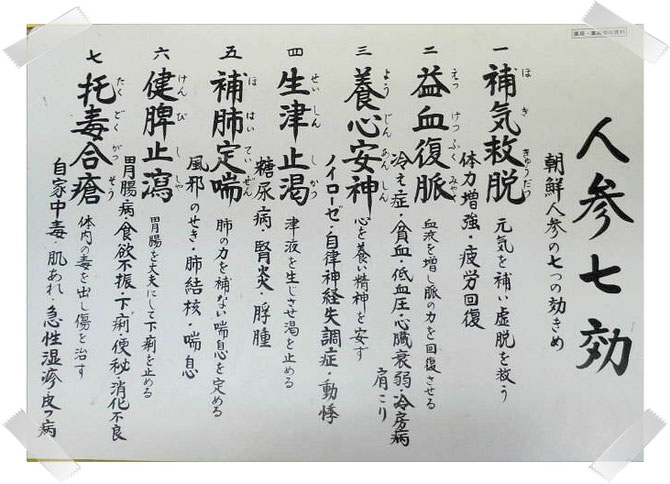 人参七効
朝鮮人参の七つの効きめ
一 補気救脱
ほ き きゅう だつ
元気を補い虚脱を救う
体力増強・疲労回復
二 益血復脈
えっ けつ ふく みゃく
血液を増し脈の力を回復させる
冷え症・貧血・低血圧・心臓衰弱・冷房病
肩こり
三 養心安神
よう じん あん しん
心を養い精神を安ず
ノイローゼ・自律神経失調症・動悸
四 生津止渇
せい しん し かつ
津液を生じさせ渇を止める
糖尿病・腎炎・浮腫
五 補肺定喘
ほ はい てい ぜん
肺の力を補ない喘息を定める
風邪のせき・肺結核・喘息
六 健脾止瀉
けん ぴ し しゃ
胃腸を丈夫にして下痢を止める
胃腸病・食欲不振・下痢・便秘・消化不良
七 托毒合瘡
たく どく がっ そう
体内の毒を出し傷を治す
自家中毒・肌あれ・急性湿疹・皮フ病